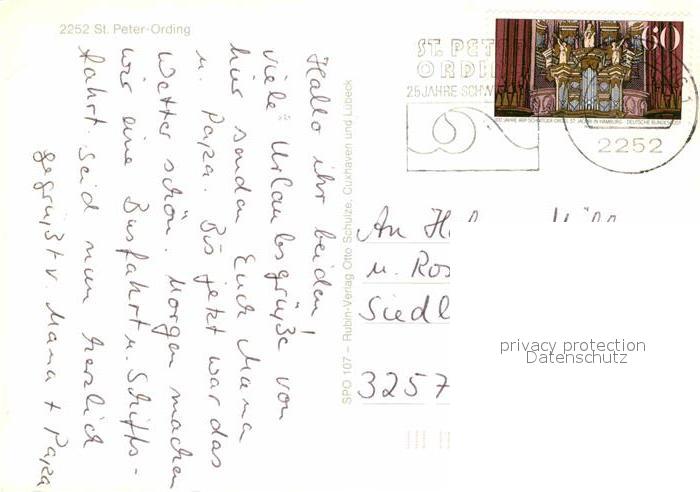 2252 St. Peter-Ording
Hallo ihr beiden!
Viele Urlaubsgrüße von
hier senden Euch Mama
u. Papa. Bis jetzt war das
Wetter schön. Morgen machen
wir eine Busfahrt u. Schiffs-
fahrt. Seid nun herzlich
gegrüßt v. Mama + Papa
SPO 107 – Rubin-Verlag Otto Schulze, Cuxhaven und Lübeck
ST. PET
ORDI
25 JAHRE SCHW
60
300 JAHRE ARP SCHNITGER ORGEL ST. JACOBI IN HAMBURG · DEUTSCHE BUNDESPOST
2252
An
u. Ros
Siedl
3257
privacy protection
Datenschutz